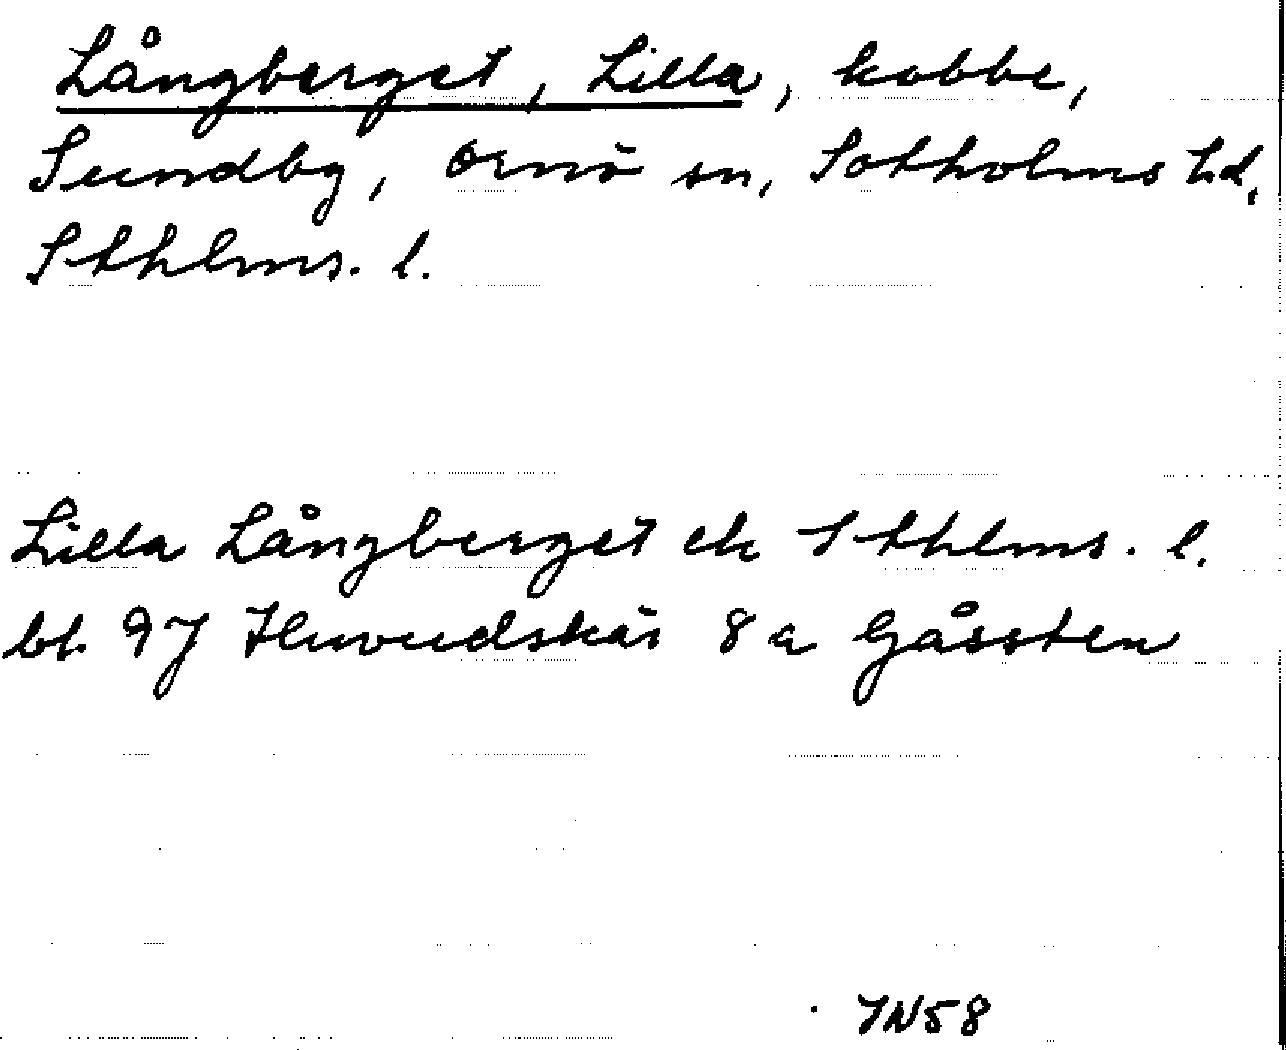 Långberget, Lilla, kobbe,
Sundby, Ornö sn, Sotholms hd,
Sthlms. l.
Lilla Långberget ek Sthlms. l.
bl. 97 Huvudskär 8 a Gåssten
JN58